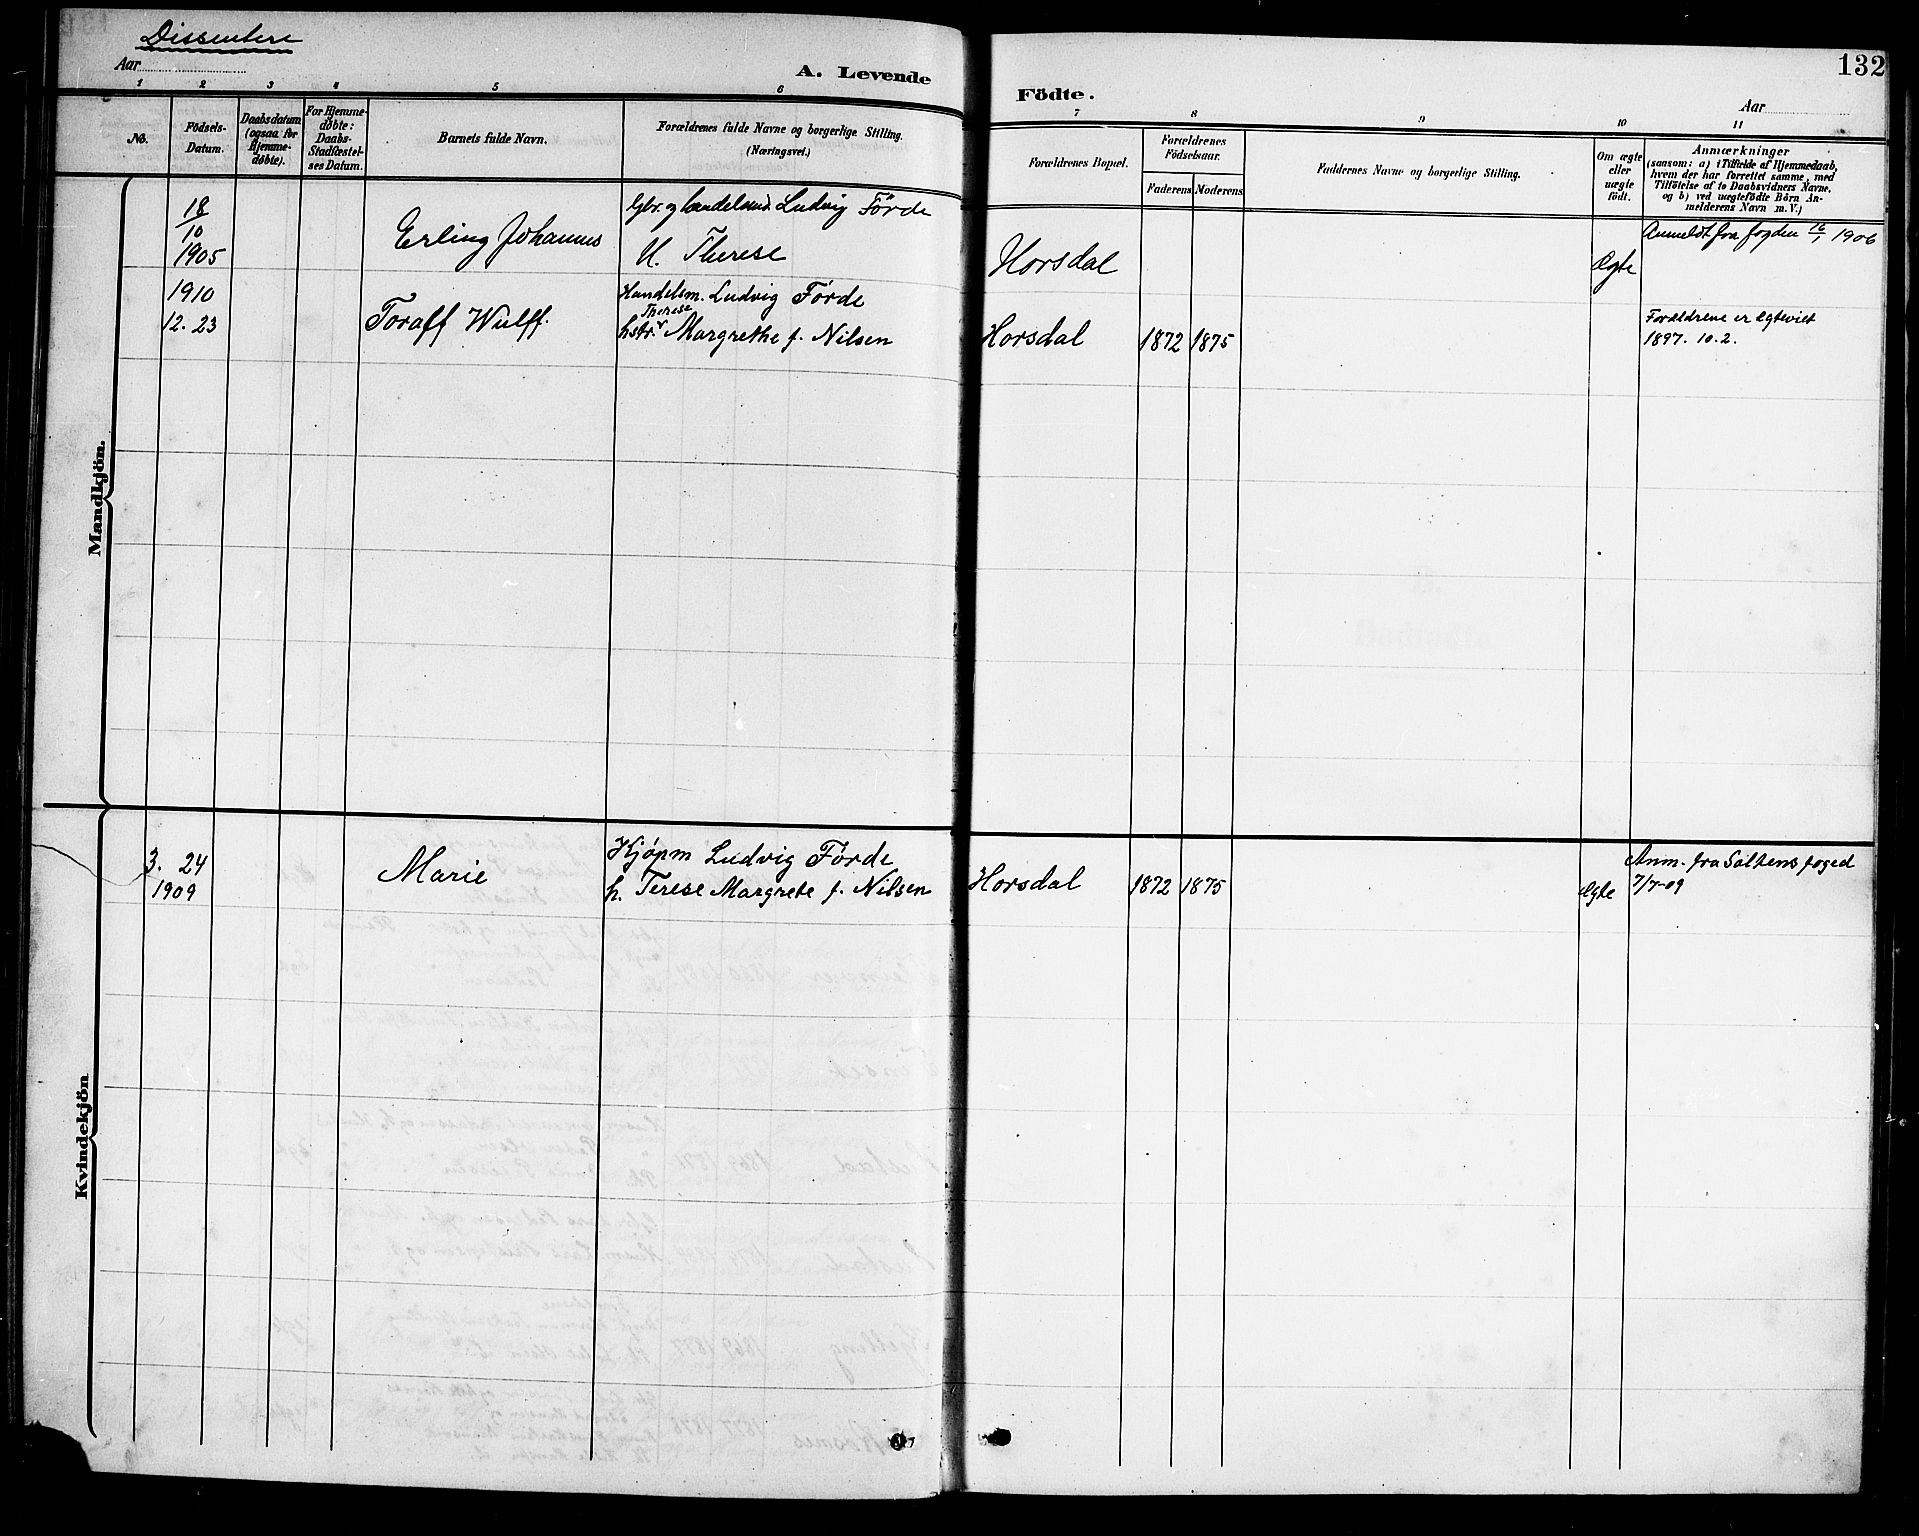 Dissentere
132
Aar
A. Levende
Födte.
Aar
1 2 3 4 5 6 7 8 9 10 11
No.
Födsels-
Datum.
Daabsdatum
(ogsaa for
Hjemme-
døbte).
For Hjemme-
døbte:
Daabs-
Stadfæstel-
ses Datum.
Barnets fulde Navn.
Forældrenes fulde Navne og borgerlige Stilling.
(Næringsvei.)
Forældrenes Bopæl.
Forældrenes
Födselsaar.
Faderens
Moderens
Faddernes Navne og borgerlige Stilling.
Om ægte
eller
uægte
født.
Anmærkninger
(saasom: a) i Tilfælde af Hjemmedaab,
hvem der har forrettet samme, med
Tilføielse af to Daabsvidners Navne,
og b) ved uægtefödte Börn An-
melderens Navn m. V.)
Mandkjön.
18/10
1905
Erling Johannes
Gbr. og handelsm. Ludvig Förde
H. Therese
Horsdal
Ægte
Anmeldt fra fogden 16/1 1906
1910
12. 23
Toralf Wulff.
Handelsm. Ludvig Førde
Therese
hstr. Margrethe f. Nilsen
Horsdal
1872 1875
Forældrene er ægteviet
1897. 10.2.
Kvindekjön
3. 24
1909
Marie
Kjøpm Ludvig Førde
h. Terese Margrete f. Nilsen
Horsdal
1872 1875
Ægte
Anm. fra Saltens foged
7/7-09